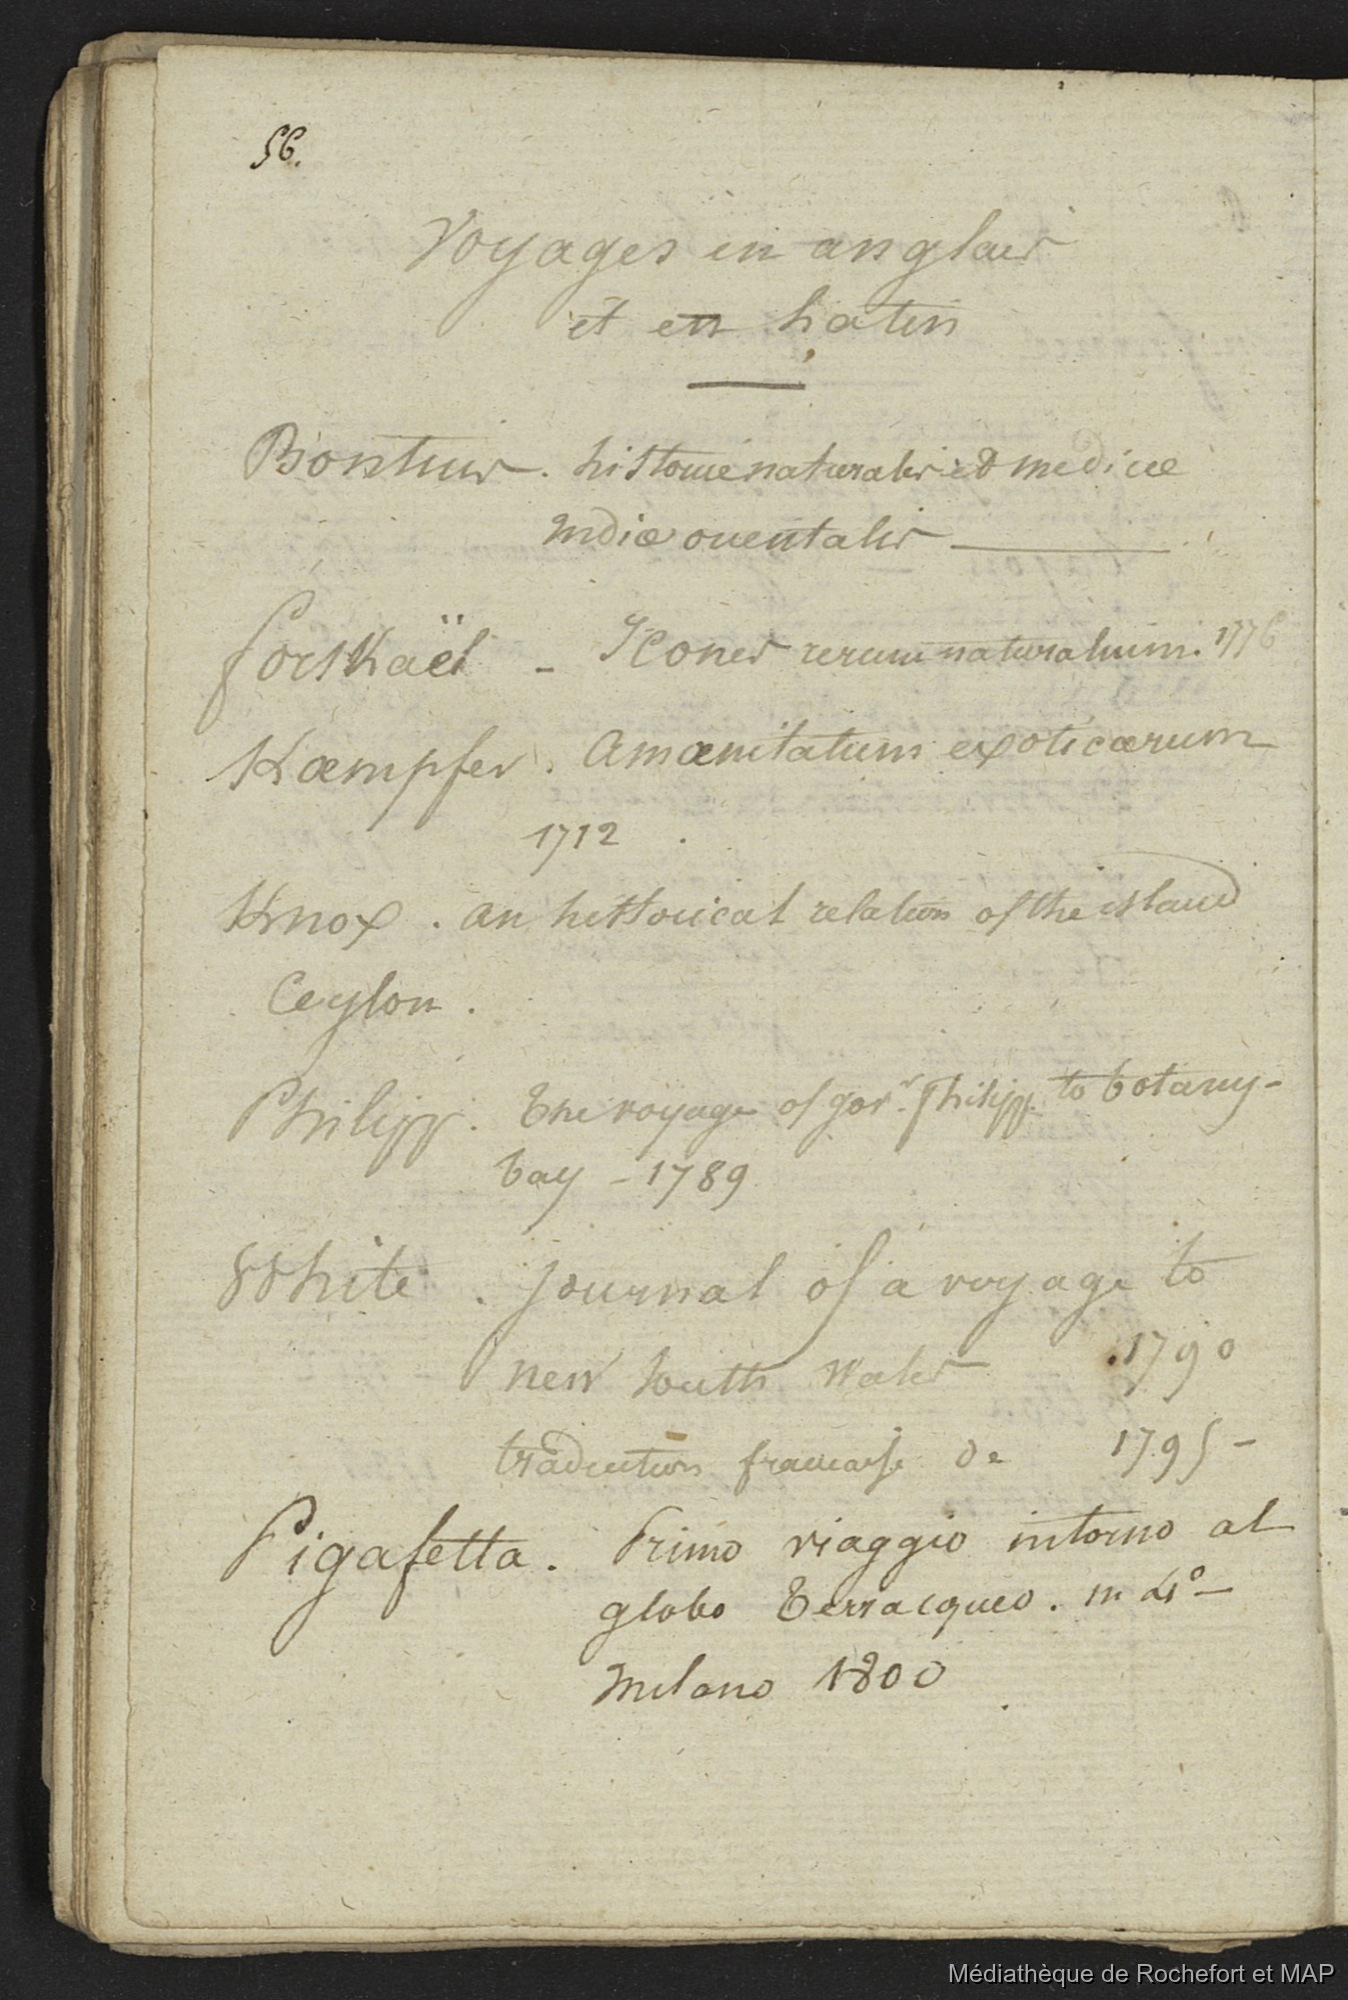 56.
Voyages en anglais
et en Latin
Bontius. historiæ naturalis et medicæ
Indiæ orientalis
forskaël - Icones rerum naturalium. 1776
Kæmpfer. Amænitatum exoticarum
1712.
Knox. an historical relation of the island
Ceylon.
Philipp. The voyage of gov.r Philipp to botany-
bay - 1789
White. Journal of a voyage to
new South Wales .1790
traduction francaise de 1795 -
Pigafetta. Primo viaggio intorno al
globo Terracqueo. in 4º -
Milano 1800
Médiathèque de Rochefort et MAP